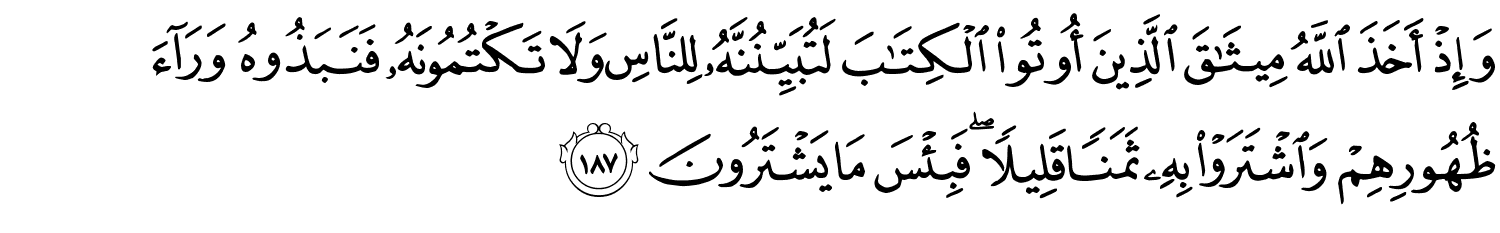 وَإِذْ أَخَذَ ٱللَّهُ مِيثَٰقَ ٱلَّذِينَ أُوتُوا۟ ٱلْكِتَٰبَ لَتُبَيِّنُنَّهُۥ لِلنَّاسِ وَلَا تَكْتُمُونَهُۥ فَنَبَذُوهُ وَرَآءَ
ظُهُورِهِمْ وَٱشْتَرَوْا۟ بِهِۦ ثَمَنًا قَلِيلًا ۖ فَبِئْسَ مَا يَشْتَرُونَ ١٨٧